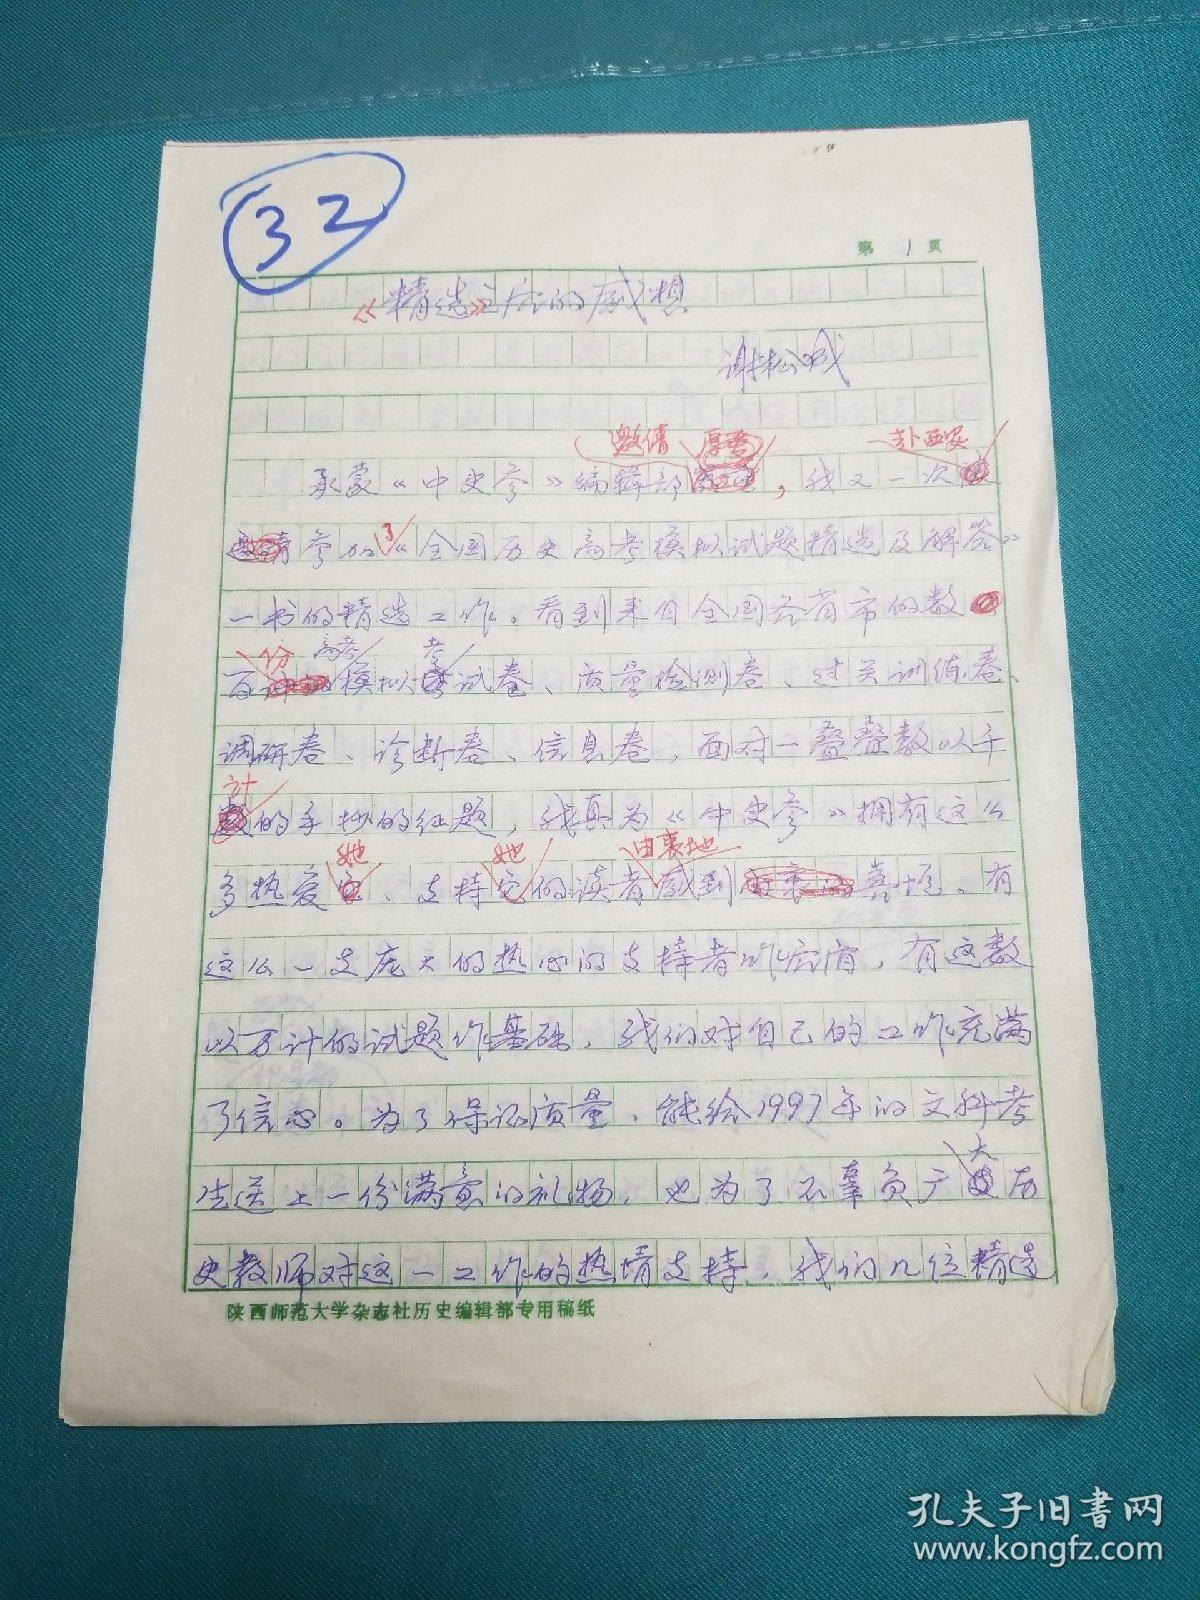 32
第1页
《精选》之后的感想
谢松
邀请 厚爱 赴西安
承蒙《中史参》编辑部,我又一次
参加了《全国历史高考模拟试题精选及解答》
一书的精选工作。看到来自全国各省市的数
份 高考 考
百模拟试卷、质量检测卷、过关训练卷、
调研卷、诊断卷、信息卷,面对一叠叠数以千
计
的手抄的征题,我真为《中史参》拥有这么
她 她 由衷地
多热爱它、支持它的读者感到喜悦。有
这么一支庞大的热心的支持者作后盾,有这数
以万计的试题作基础,我们对自己的工作充满
了信心。为了保证质量,能给1997年的文科考
大
生送上一份满意的礼物,也为了不辜负广历
史教师对这一工作的热情支持,我们几位精选
陕西师范大学杂志社历史编辑部专用稿纸
孔夫子旧书网
www.kongfz.com